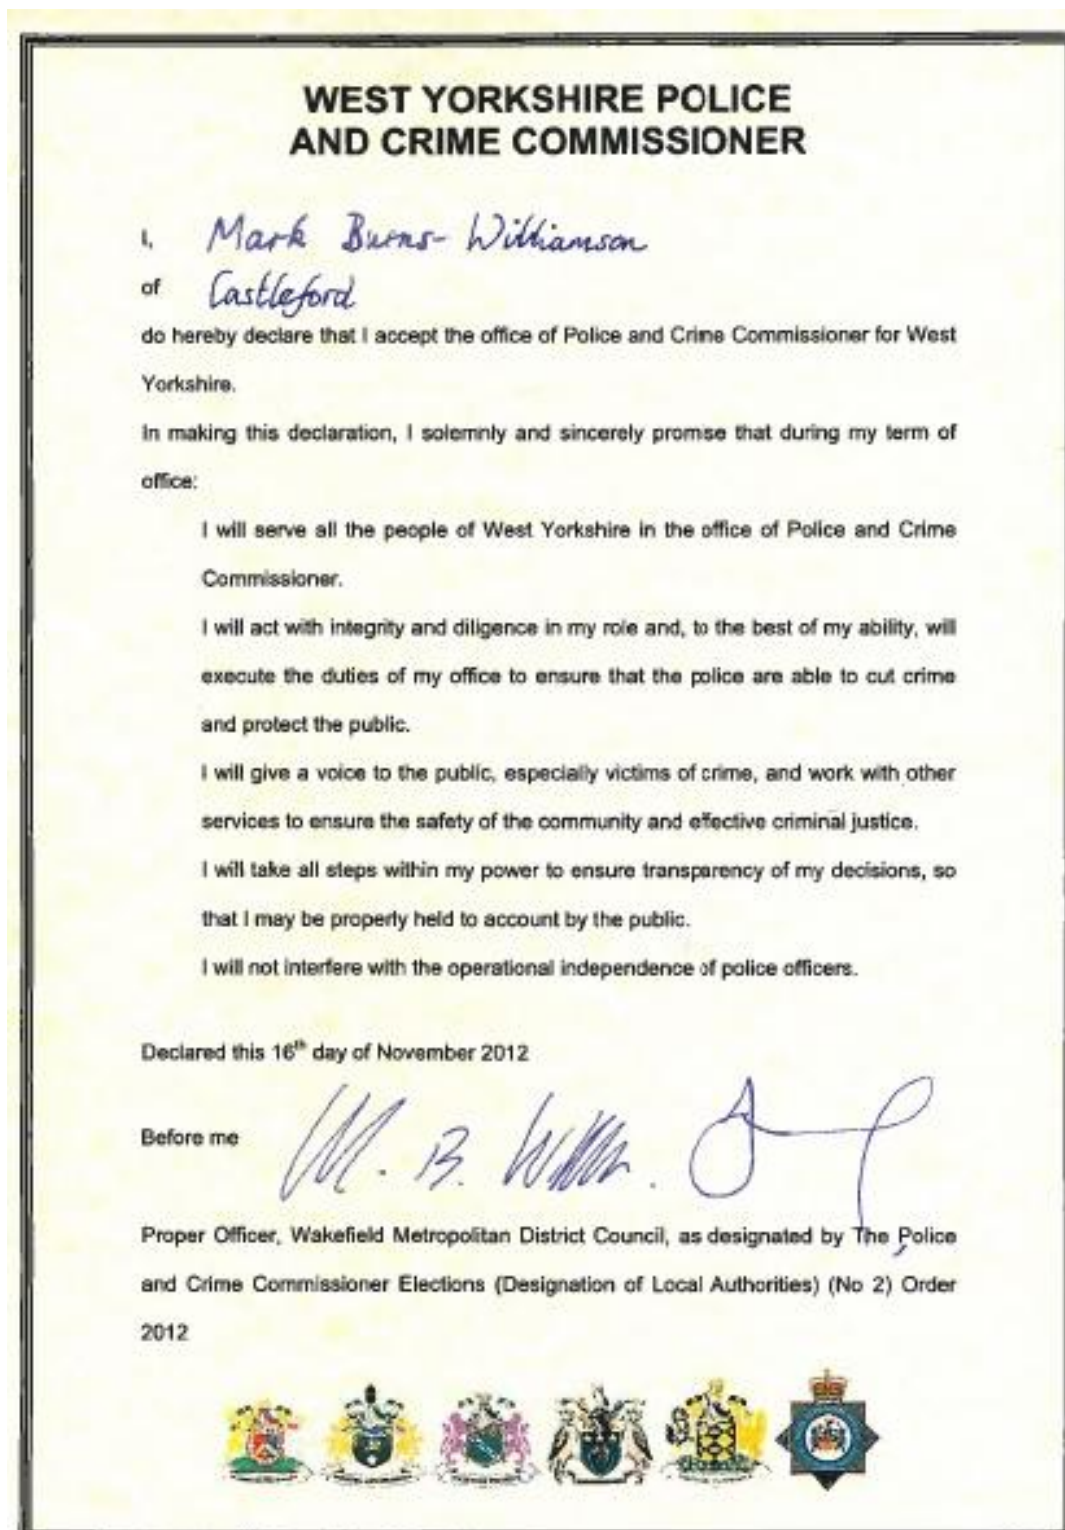 WEST YORKSHIRE POLICE
AND CRIME COMMISSIONER
I, Mark Burns-Williamson
of Castleford
do hereby declare that I accept the office of Police and Crime Commissioner for West
Yorkshire.
In making this declaration, I solemnly and sincerely promise that during my term of
office:
I will serve all the people of West Yorkshire in the office of Police and Crime
Commissioner.
I will act with integrity and diligence in my role and, to the best of my ability, will
execute the duties of my office to ensure that the police are able to cut crime
and protect the public.
I will give a voice to the public, especially victims of crime, and work with other
services to ensure the safety of the community and effective criminal justice.
I will take all steps within my power to ensure transparency of my decisions, so
that I may be properly held to account by the public.
I will not interfere with the operational independence of police officers.
Declared this 16th day of November 2012
Before me M. B. 
Proper Officer, Wakefield Metropolitan District Council, as designated by The Police
and Crime Commissioner Elections (Designation of Local Authorities) (No 2) Order
2012